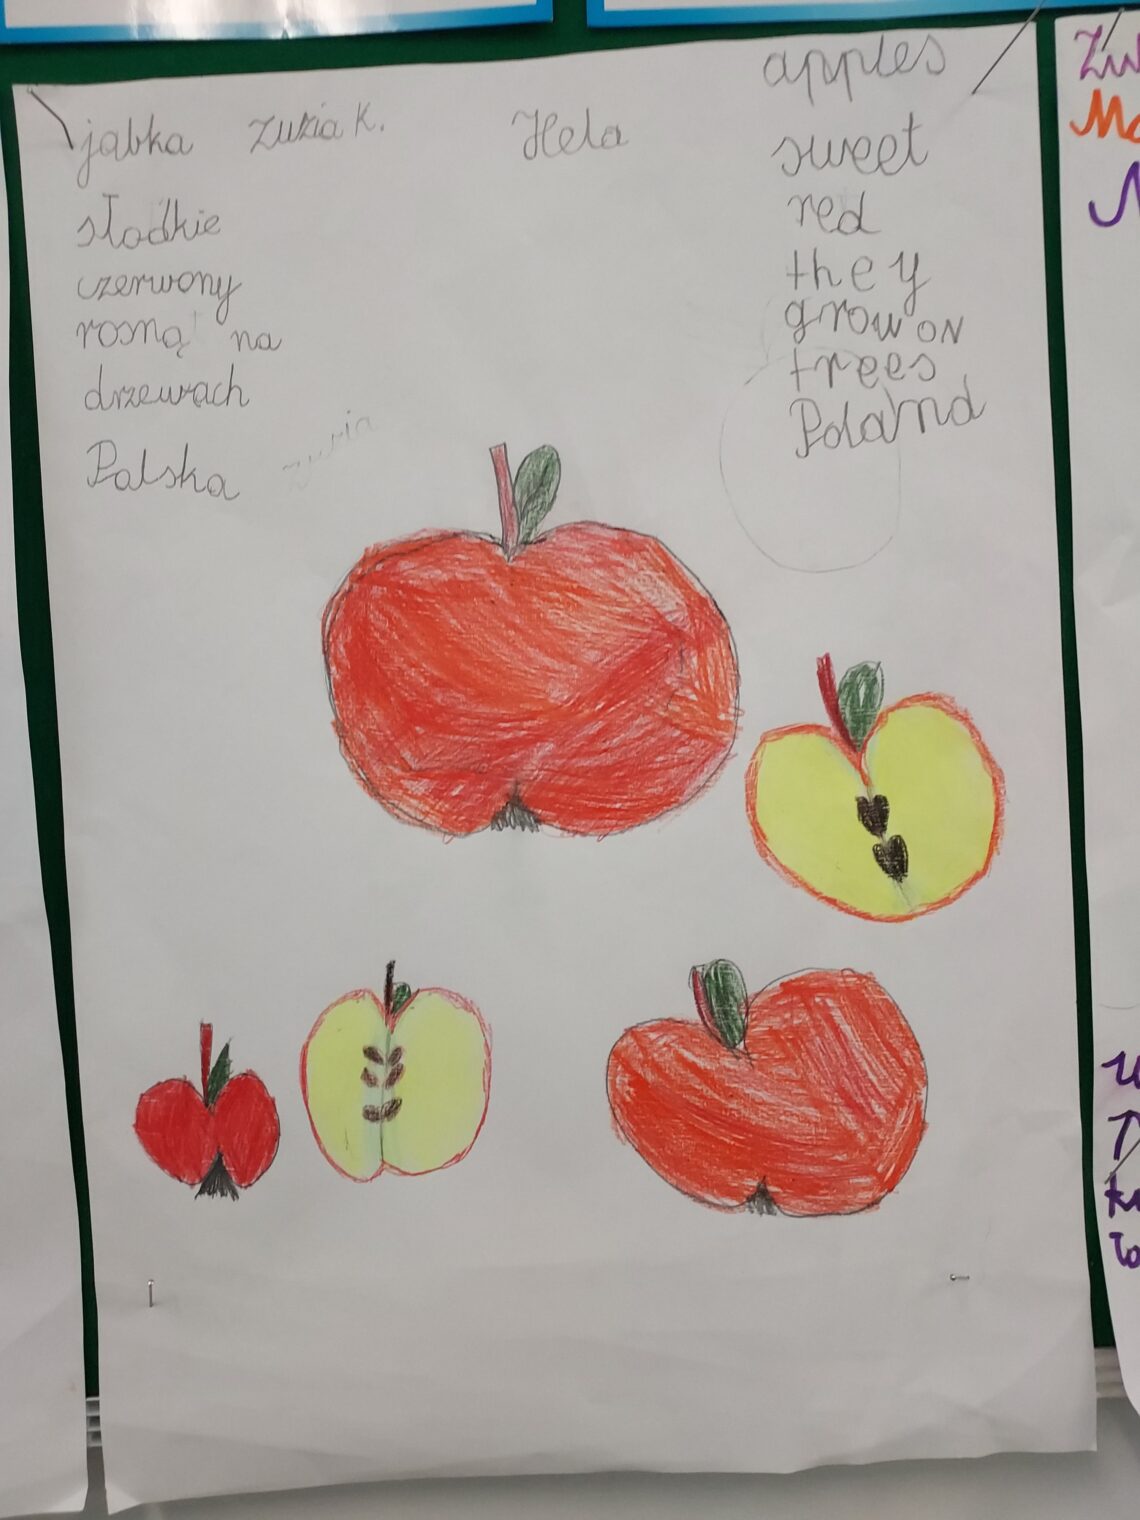 jabka
zuzia K.
Hela
słodkie
czerwony
rosną na
drzewach
Polska
zuzia
apples
sweet
red
they
grow on
trees
Poland